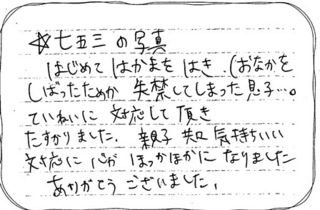 ☆七五三の写真
はじめて はかまを はき、(おなかを
しばったためか 失禁してしまった息子…。
ていねいに 対応して頂き
たすかりました。親子共 気持ちいい
対応に 心が ほっかほかに なりました
ありがとう ございました。